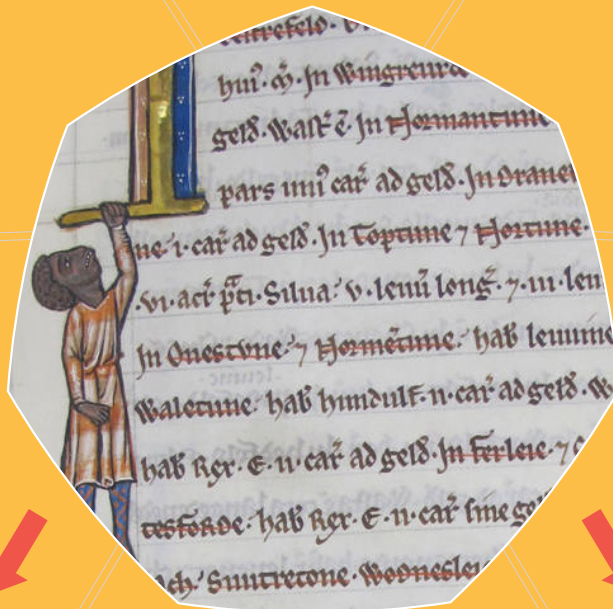 hui᷒. ꝳ. In Wingreurde
geld̄. Wasť ē. In Normantune
pars uni᷒ cař ad geld̄. In Oranei
ne .i. cař ad geld̄. In Toptune ⁊ Nortune.
.vi. acř p̄ti. Silua .v. leuū long̃. ⁊ .iii. leu
In Onestune. ⁊ Normētune. hab̄ leuuine
Waletune. hab̄ hundulf .ii. cař ad geld̄. W
hab̄ Rex. E. ii. cař ad geld̄. In ferleie. ⁊
tesforde. hab̄ Rex. E. ii. cař sine
och. Suuetretone. Wodnesleie